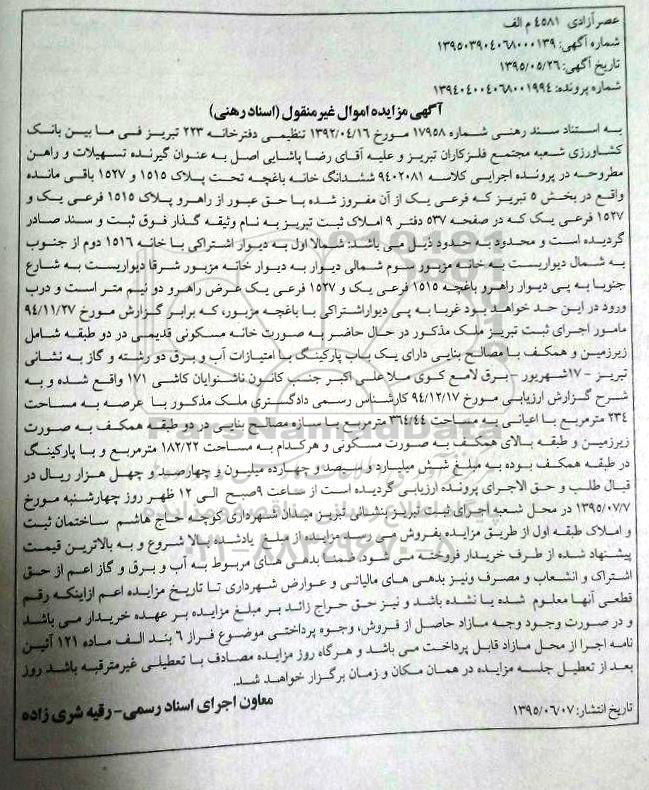 عصر آزادی ۴۵۸۱ م الف
شماره آگهی: ۱۳۹۵۰۳۹۰۴۰۶۸۰۰۰۱۳۹
تاریخ آگهی: ۱۳۹۵/۰۵/۲۶
شماره پرونده: ۱۳۹۴۰۴۰۰۴۰۶۸۰۰۱۹۹۴
آگهی مزایده اموال غیرمنقول (اسناد رهنی)
به استناد سند رهنی شماره ۱۷۹۵۸ مورخ ۱۳۹۲/۰۴/۱۶ تنظیمی دفترخانه ۲۲۳ تبریز فی ما بین بانک
کشاورزی شعبه مجتمع فلزکاران تبریز و علیه آقای رضا پاشایی اصل به عنوان گیرنده تسهیلات و راهن
مطروحه در پرونده اجرایی کلاسه ۹۴۰۲۰۸۱ ششدانگ خانه باغچه تحت پلاک ۱۵۱۵ و ۱۵۲۷ باقی مانده
واقع در بخش ۵ تبریز که فرعی یک از آن مفروز شده با حق عبور از راهرو پلاک ۱۵۱۵ فرعی یک و
۱۵۲۷ فرعی یک که در صفحه ۵۳۷ دفتر ۹ املاک ثبت تبریز به نام وثیقه گذار فوق ثبت و سند صادر
گردیده است و محدود به حدود ذیل می باشد: شمالا اول به دیوار اشتراکی با خانه ۱۵۱۶ دوم از جنوب
به شمال دیواریست به خانه مزبور سوم شمالی دیوار به دیوار خانه مزبور شرقا دیواریست به شارع
جنوبا به پی دیوار راهرو باغچه ۱۵۱۵ فرعی یک و ۱۵۲۷ فرعی یک عرض راهرو دو نیم متر است و درب
ورود در این حد خواهد بود غربا به پی دیواراشتراکی با باغچه مزبور، که برابر گزارش مورخ ۹۴/۱۱/۲۷
مامور اجرای ثبت تبریز ملک مذکور در حال حاضر به صورت خانه مسکونی قدیمی در دو طبقه شامل
زیرزمین و همکف با مصالح بنایی دارای یک باب پارکینگ با امتیازات آب و برق دو رشته و گاز به نشانی
تبریز - ۱۷شهریور - برق لامع کوی ملاعلی اکبر جنب کانون ناشنوایان کاشی ۱۷۱ واقع شده و به
شرح گزارش ارزیابی مورخ ۹۴/۱۲/۱۷ کارشناس رسمی دادگستری ملک مذکور با عرصه به مساحت
۲۳۴ مترمربع با اعیانی به مساحت ۳۶۴/۴۴ مترمربع با سازه مصالح بنایی در دو طبقه همکف به صورت
زیرزمین و طبقه بالای همکف به صورت مسکونی و هرکدام به مساحت ۱۸۲/۲۲ مترمربع و با پارکینگ
در طبقه همکف بوده به مبلغ شش میلیارد و سیصد و چهارده میلیون و چهارصد و چهل هزار ریال در
قبال طلب و حق الاجرای پرونده ارزیابی گردیده است از ساعت ۹صبح الی ۱۲ ظهر روز چهارشنبه مورخ
۱۳۹۵/۰۷/۷ در محل شعبه اجرای ثبت تبریز بنشانی تبریز میدان شهرداری کوچه حاج هاشم ساختمان ثبت
و املاک طبقه اول از طریق مزایده بفروش می رسد مزایده از مبلغ یادشده بالا شروع و به بالاترین قیمت
پیشنهاد شده از طرف خریدار فروخته می شود. ضمنا بدهی های مربوط به آب و برق و گاز اعم از حق
اشتراک و انشعاب و مصرف ونیز بدهی های مالیاتی و عوارض شهرداری تا تاریخ مزایده اعم ازاینکه رقم
قطعی آنها معلوم شده یا نشده باشد و نیز حق حراج زائد بر مبلغ مزایده بر عهده خریدار می باشد
و در صورت وجود وجه مازاد حاصل از فروش، وجوه پرداختی موضوع فراز ۶ بند الف ماده ۱۲۱ آئین
نامه اجرا از محل مازاد قابل پرداخت می باشد و هرگاه روز مزایده مصادف با تعطیلی غیرمترقبه باشد روز
بعد از تعطیل جلسه مزایده در همان مکان و زمان برگزار خواهد شد.
تاریخ انتشار: ۱۳۹۵/۰۶/۰۷
معاون اجرای اسناد رسمی- رقیه شری زاده
ParsNamadData
۰۲۱-۸۸۳۴۹۶۷۰-۸